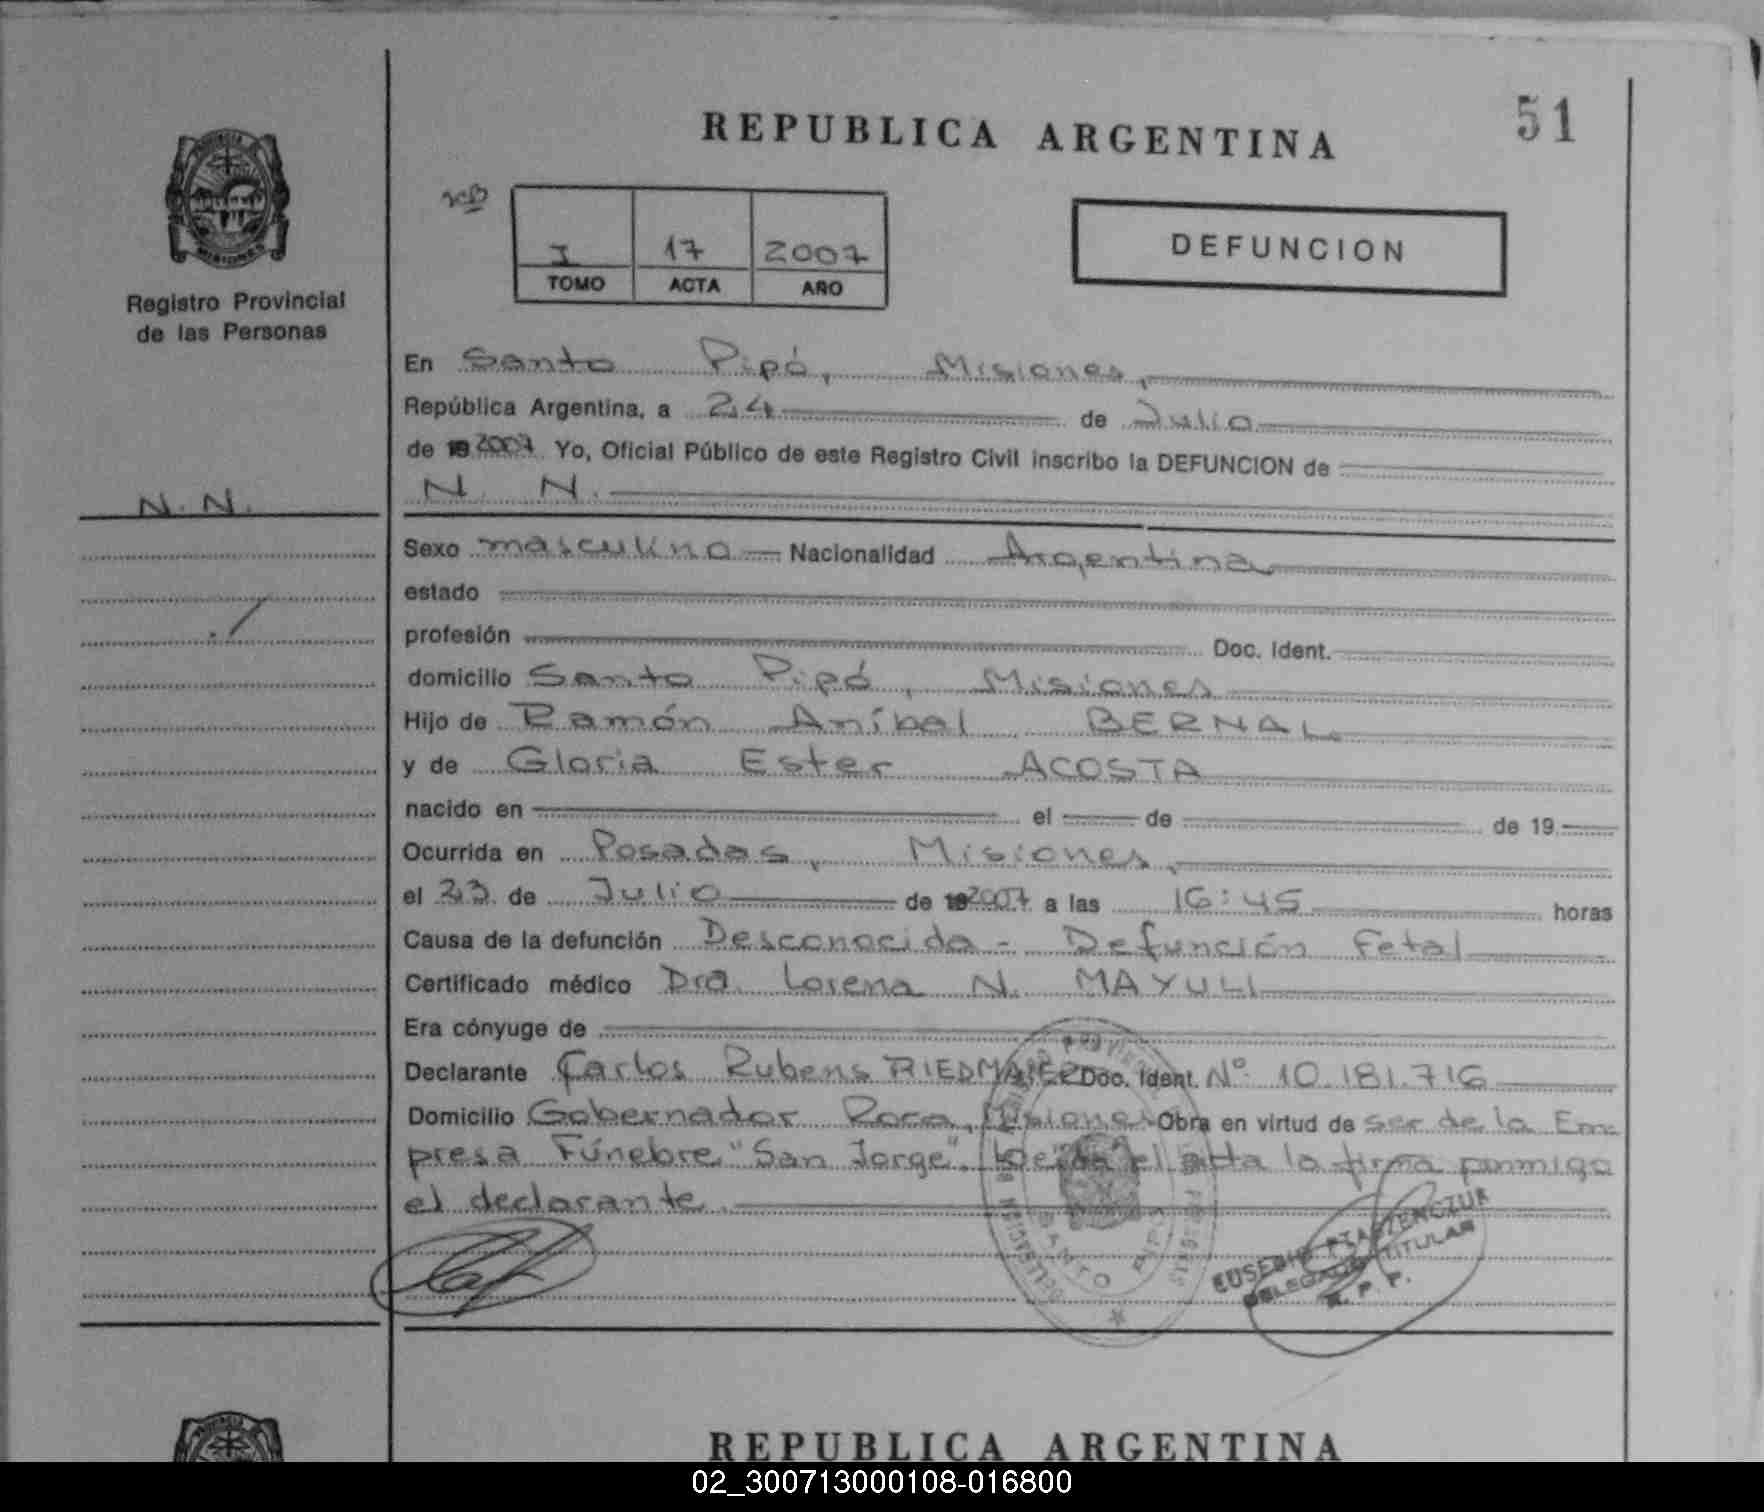 REPUBLICA ARGENTINA
51
PROVINCIA DE
MISIONES
Registro Provincial
de las Personas
I 17 2007
TOMO ACTA AÑO
DEFUNCION
En Santo Pipó, Misiones,
República Argentina, a 24 de Julio
de 19 2007 Yo, Oficial Público de este Registro Civil inscribo la DEFUNCION de
N. N.
N. N.
Sexo masculino Nacionalidad Argentina
estado
profesión Doc. Ident.
domicilio Santo Pipó, Misiones
Hijo de Ramón Aníbal BERNAL
y de Gloria Ester ACOSTA
nacido en el de de 19
Ocurrida en Posadas, Misiones,
el 23 de Julio de 19 2007 a las 16:45 horas
Causa de la defunción Desconocida - Defunción Fetal
Certificado médico Dra. Lorena N. MAYULI
Era cónyuge de
Declarante Carlos Rubens RIEDMAIER Doc. Ident. Nº 10.181.716
Domicilio Gobernador Roca, Misiones Obra en virtud de ser de la Em-
presa Fúnebre "San Jorge". Leída el acta la firma conmigo
el declarante.
EUSEBIO
DELEGADO TITULAR
R. P. P.
REPUBLICA ARGENTINA
02_300713000108-016800